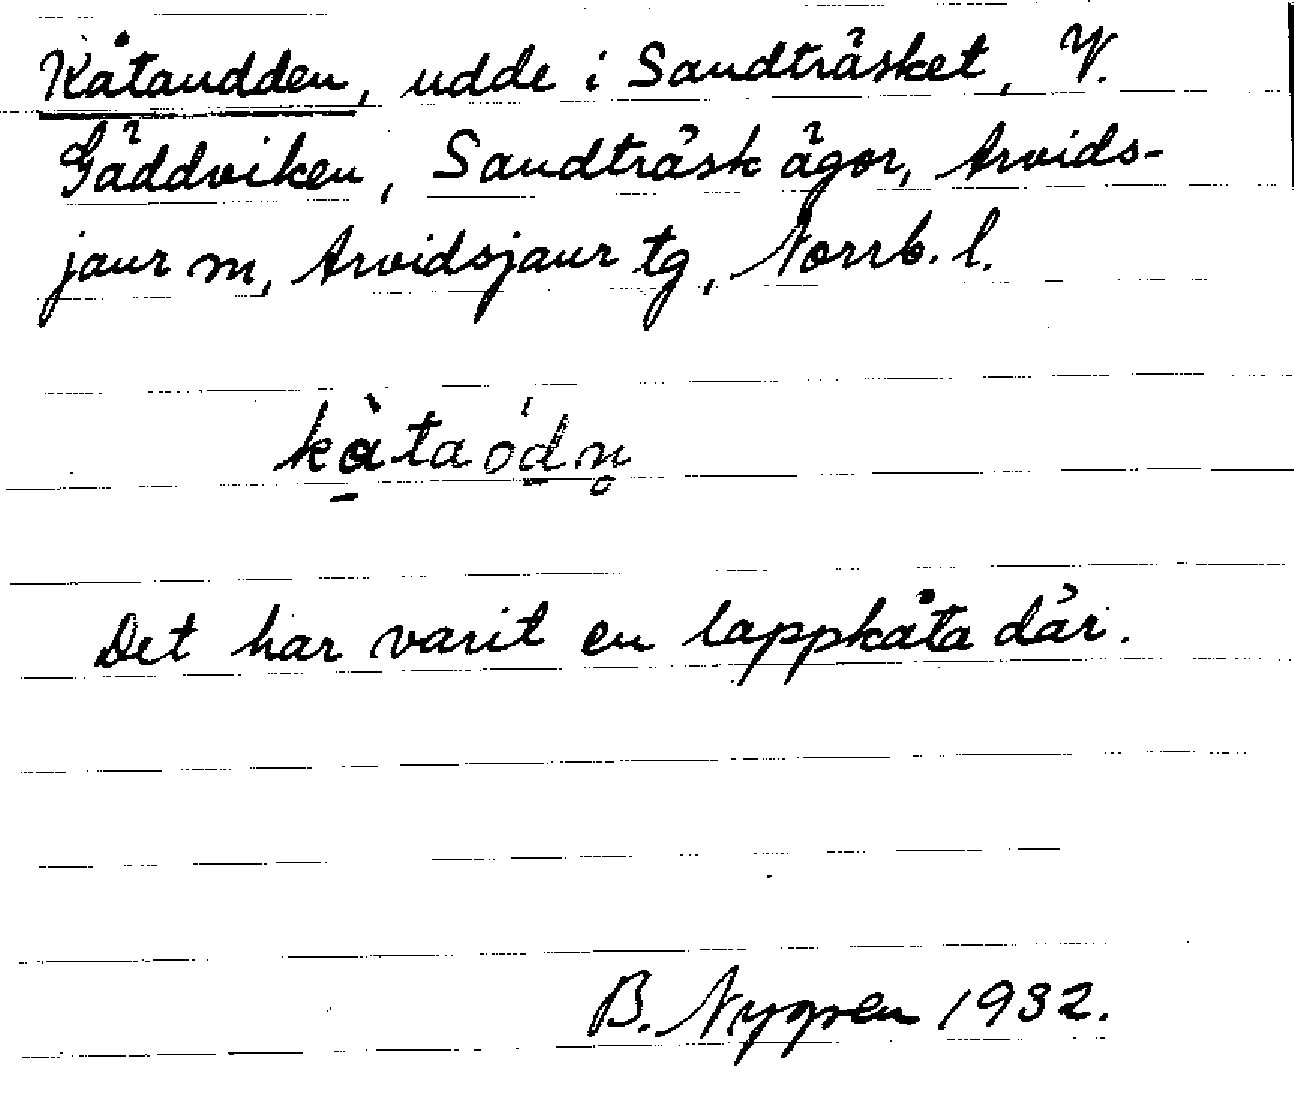 Kåtaudden, udde i Sandträsket, V.
Gäddviken, Sandträsk ägor, Arvids-
jaur sn, Arvidsjaur tg, Norrb. l.
kàtaódn̥
Det har varit en lappkåta där.
B. Nygren 1932.